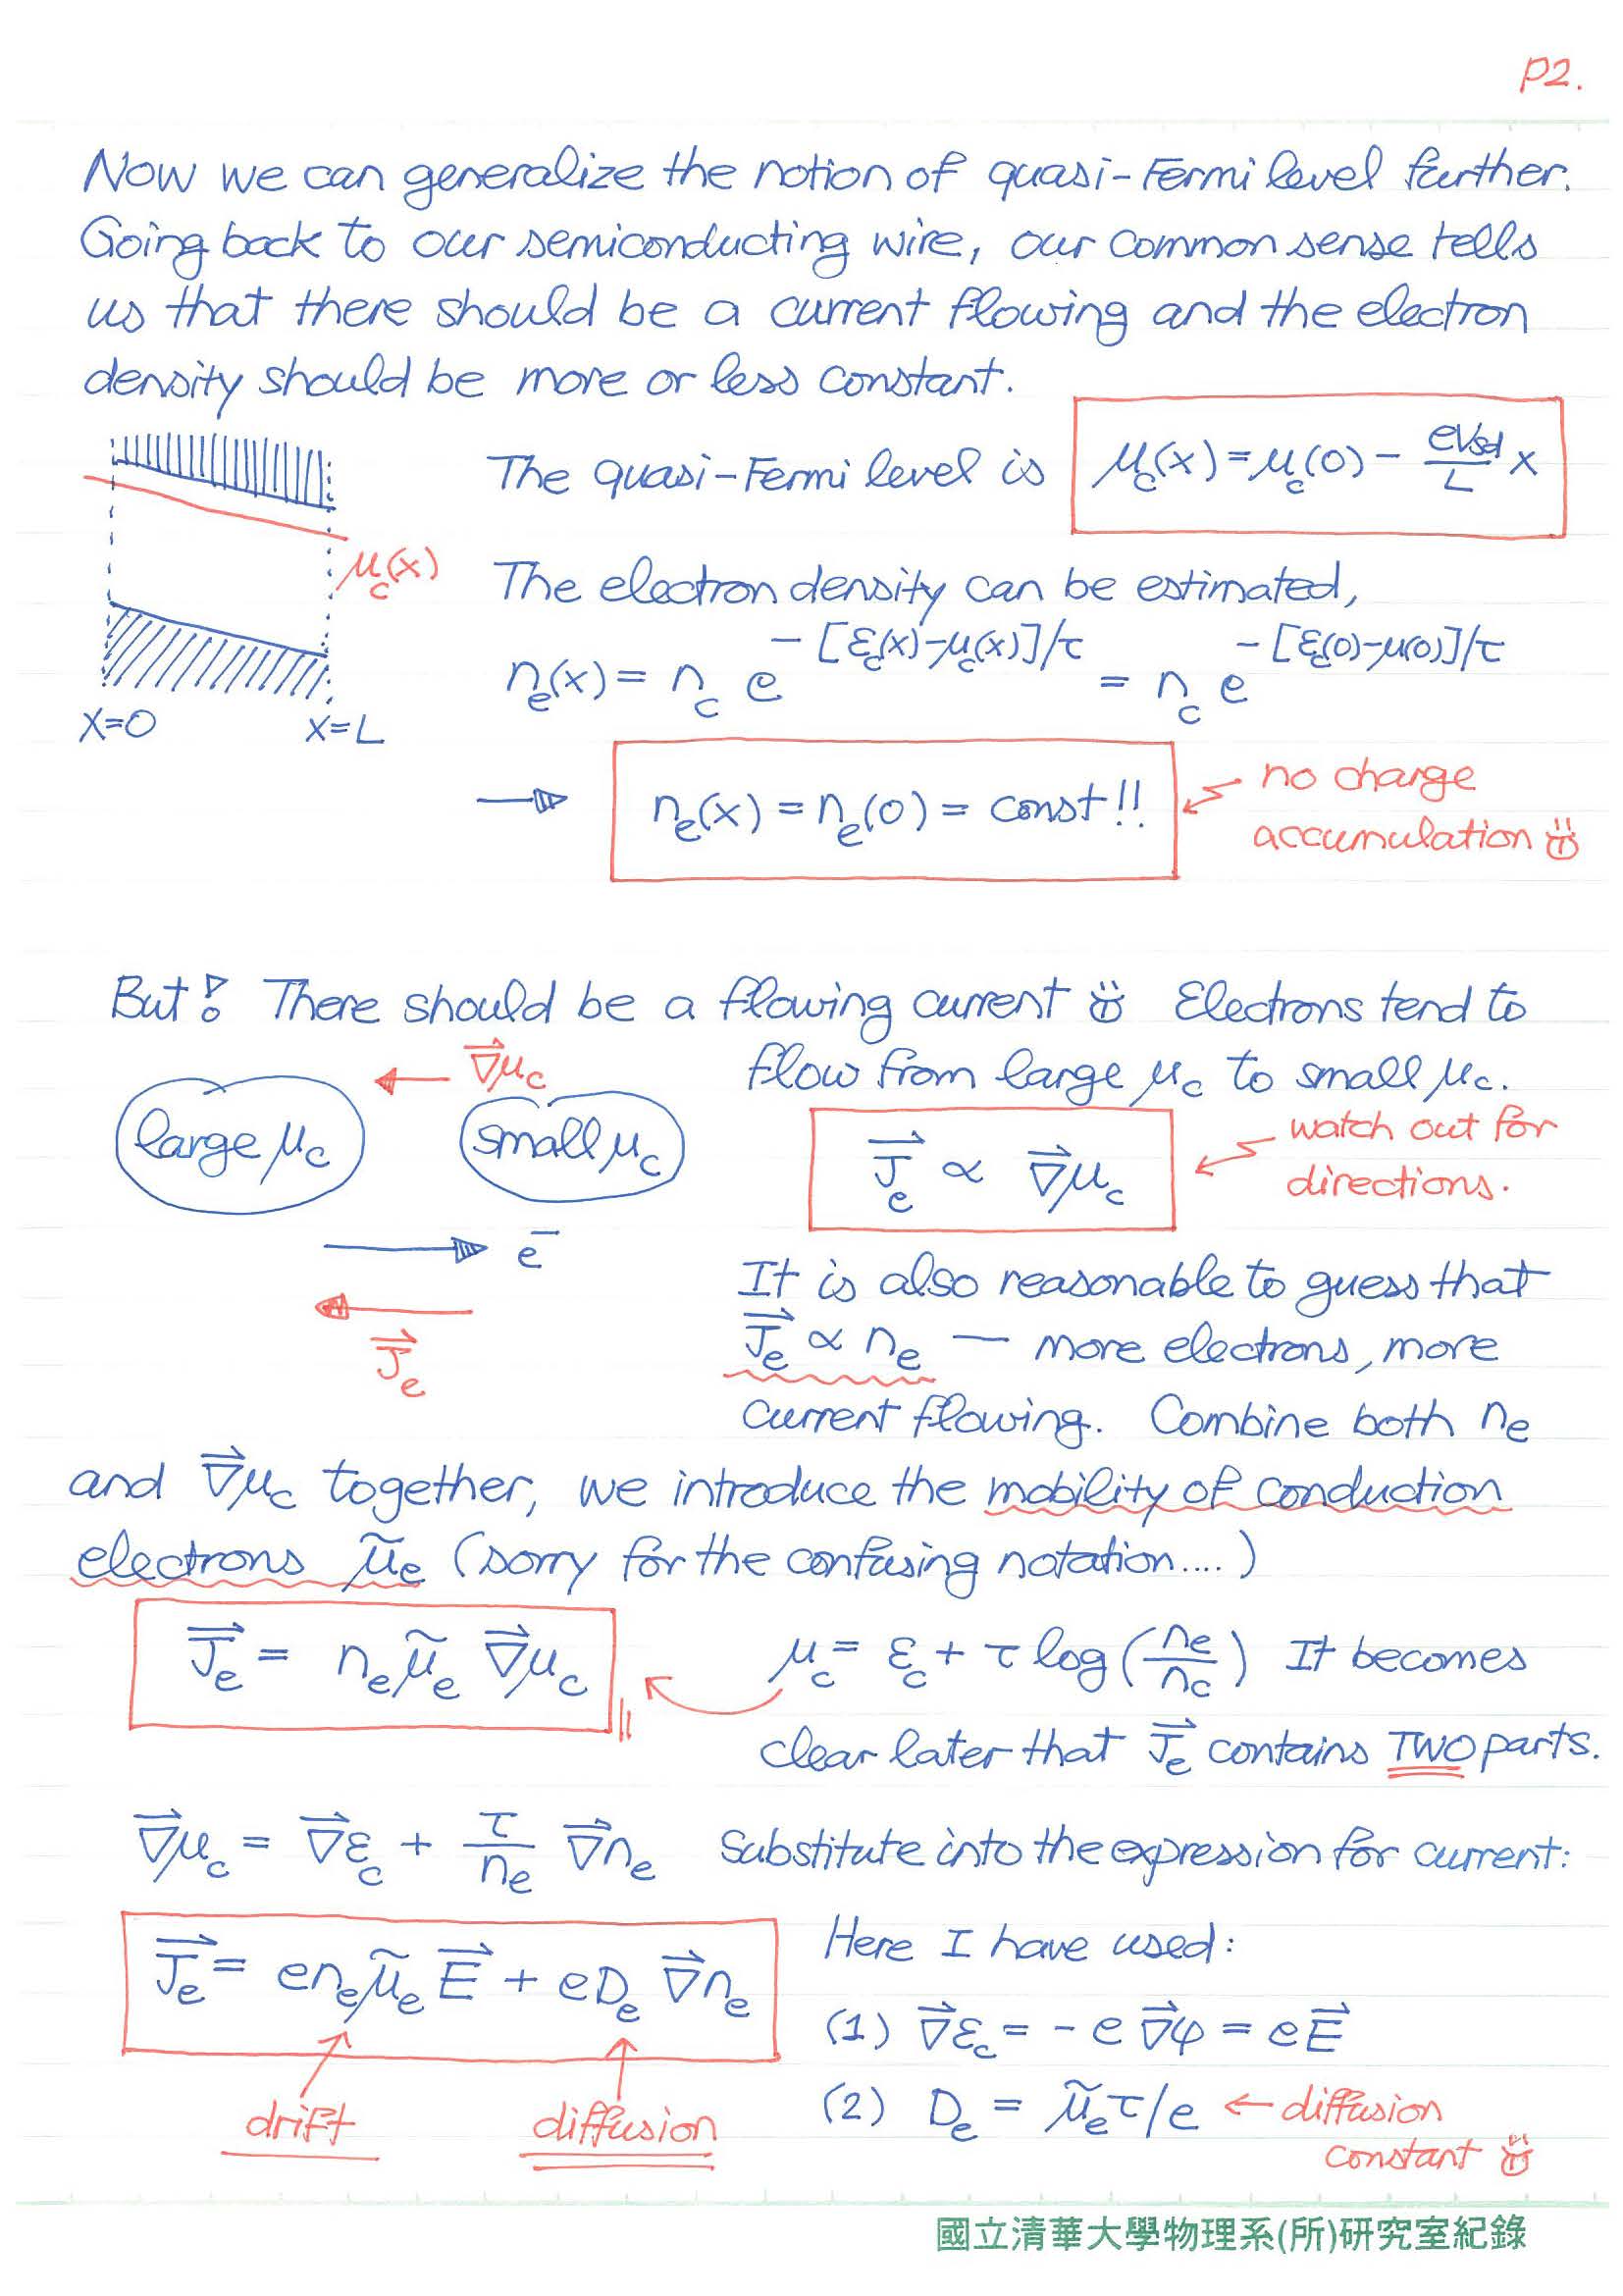 P2.
Now we can generalize the notion of quasi-Fermi level further.
Going back to our semiconducting wire, our common sense tells
us that there should be a current flowing and the electron
density should be more or less constant.
The quasi-Fermi level is μ_c(x) = μ_c(0) - eVsd/L x
μ_c(x)
The electron density can be estimated,
n_e(x) = n_c e^{-[ε_c(x)-μ_c(x)]/τ} = n_c e^{-[ε_c(0)-μ(0)]/τ}
x=0 x=L
n_e(x) = n_e(0) = const!!
no charge
accumulation
But! There should be a flowing current Electrons tend to
flow from large μ_c to small μ_c.
∇μ_c
large μ_c small μ_c
J_e ∝ ∇μ_c
watch out for
directions.
e⁻
J_e
It is also reasonable to guess that
J_e ∝ n_e — more electrons, more
current flowing. Combine both n_e
and ∇μ_c together, we introduce the mobility of conduction
electrons μ̃_e (sorry for the confusing notation....)
J_e = n_e μ̃_e ∇μ_c
μ_c = ε_c + τ log(n_e/n_c) It becomes
clear later that J_e contains TWO parts.
∇μ_c = ∇ε_c + τ/n_e ∇n_e Substitute into the expression for current:
J_e = e n_e μ̃_e E + e D_e ∇n_e
drift diffusion
Here I have used:
(1) ∇ε_c = -e∇φ = eE
(2) D_e = μ̃_e τ/e ← diffusion
constant
國立清華大學物理系(所)研究室紀錄